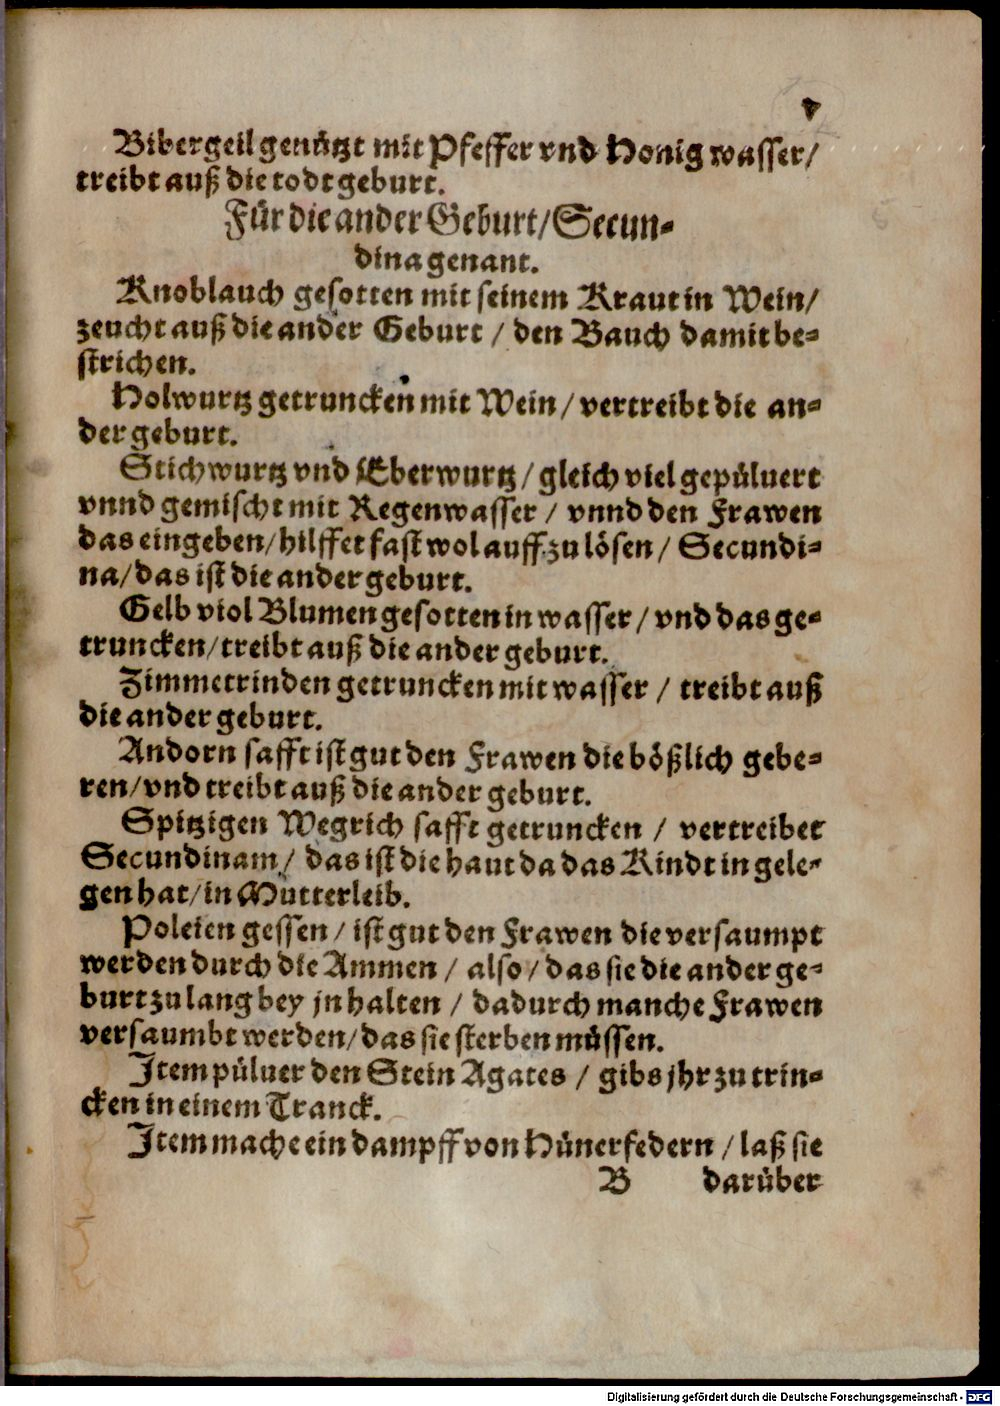 v
Bibergeil genützt mit Pfeffer vnd Honig wasser/
treibt auß die todt geburt.
Für die ander Geburt/Secun-
dina genant.
Knoblauch gesotten mit seinem Kraut in Wein/
zeucht auß die ander Geburt / den Bauch damit be-
strichen.
Holwurtz getruncken mit Wein / vertreibt die an-
der geburt.
Stichwurtz vnd Eberwurtz / gleich viel gepüluert
vnnd gemischt mit Regenwasser / vnnd den Frawen
das eingeben/hilffet fast wol auff zu lösen / Secundi-
na/das ist die ander geburt.
Gelb viol Blumen gesotten in wasser / vnd das ge-
truncken/treibt auß die ander geburt.
Zimmetrinden getruncken mit wasser / treibt auß
die ander geburt.
Andorn safft ist gut den Frawen die bößlich gebe-
ren/vnd treibt auß die ander geburt.
Spitzigen Wegrich safft getruncken / vertreibet
Secundinam / das ist die haut da das Kindt in gele-
gen hat/in Mutterleib.
Poleien gessen / ist gut den Frawen die versaumpt
werden durch die Ammen / also / das sie die ander ge-
burt zu lang bey jn halten / dadurch manche Frawen
versaumbt werden/das sie sterben müssen.
Item püluer den Stein Agates / gibs jhr zu trin-
cken in einem Tranck.
Item mache ein dampff von Hünerfedern / laß sie
B darüber
Digitalisierung gefördert durch die Deutsche Forschungsgemeinschaft - DFG